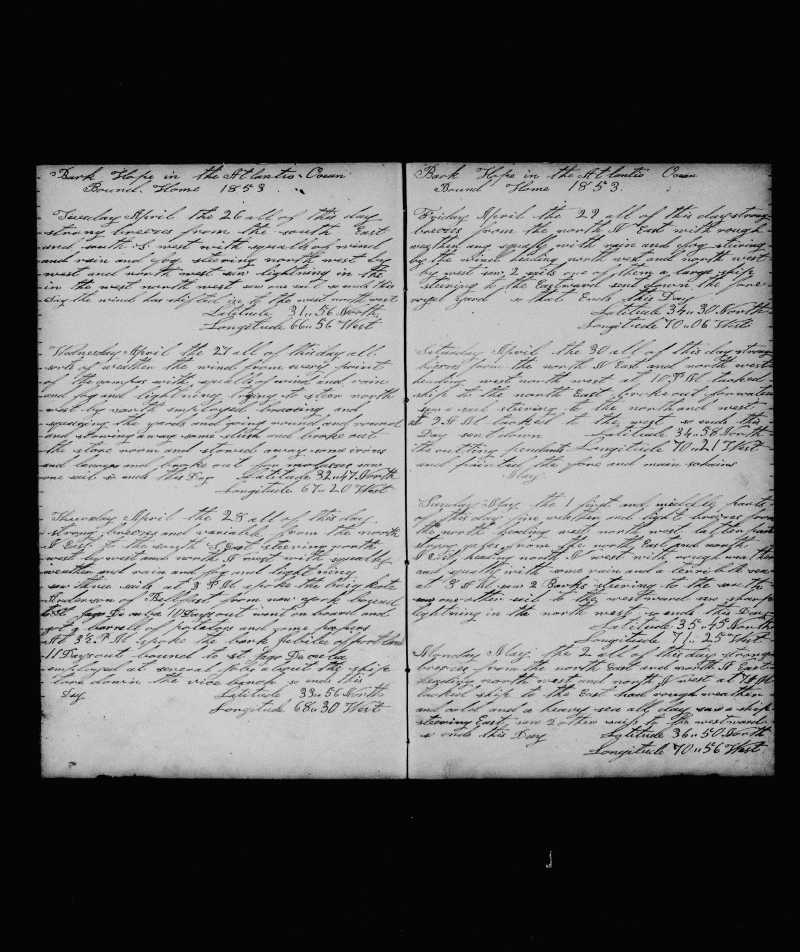 Bark Hope in the Atlantic Ocean
Bound Home 1853
Tuesday April the 26 all of this day
strong breezes from the south East
and south S west with squalls of wind
and rain and fog steering north west by
west and north west saw lightning in the
in the west north west saw one sail so ends this
Day the wind has shifted in to the west north west
Latitude 31 " 56 North
Longitude 66 " 56 West
Wednesday April the 27 all of this day all
sorts of weather the wind from every point
of the compas with squalls of wind and rain
and fog and lightning trying to steer north
west by north employed bracing and
squaring the yards and going round and round
and stowing away some slush and broke out
the store room and stowed away some irons
and lances and broke out for molasses saw
one sail so ends this Day Latitude 32 " 47 North
Longitude 67 " 20 West
Thursday April the 28 all of this day
strong breezes and variable from the north
N East to the south S East steering north
west by west and north N west with squally
weather and rain and fog and lightning
saw three sails at 3 P M spoke the brig kate
Anderson of Belfast from new york bound
to St Jago De cuba 10 Days out went on board and
got 2 barrells of potatoes and some papers
At 3 P M spoke the bark of portland
11 Days out bound to st Jago De cuba
employed at several jobs about the ship
tore down the vice bench so ends this
Day Latitude 33 " 56 North
Longitude 68 " 30 West
Bark Hope in the Atlantic Ocean
Bound Home 1853.
Friday April the 29 all of this day strong
breezes from the north N East with rough
weather and squalls with rain and fog steering
by the wind heading north west and north west
by west saw 2 sails one of them a large ship
steering to the Eastward sent down the fore
royal yard so that Ends this Day
Latitude 34 " 30 North
Longitude 70 " 06 West
Saturday April the 30 all of this day strong
breezes from the north N East and north west
heading west north west at 10 P M tacked
ship to the north East broke out for water
saw a sail steering to the north and west
at 2 A M tacked to the west so ends this
Day sent down Latitude 34 " 58 North
the cutting pendants Longitude 70 " 21 West
and painted the fore and main
May
Sunday May the 1 first and middle parts
of this day fine weather and light breezes from
the north heading west north west latter part
strong breezes from the north East and north
N East heading north N west with rough weather
and squally with some rain and a terrible sea
at 3 A M saw 2 Barks steering to the south
saw one other sail to the westward saw sharp
lightning in the north west so ends this Day
Latitude 35 " 45 North
Longitude 71 " 25 West
Monday May the 2 all of this day strong
breezes from the north East and north N East
heading north west and north N west at
tacked ship to the East had rough weather
and cold and a heavy sea all day saw a ship
steering East saw 2 other sails to the westward
so ends this Day Latitude 36 " 50 North
Longitude 70 " 56 West